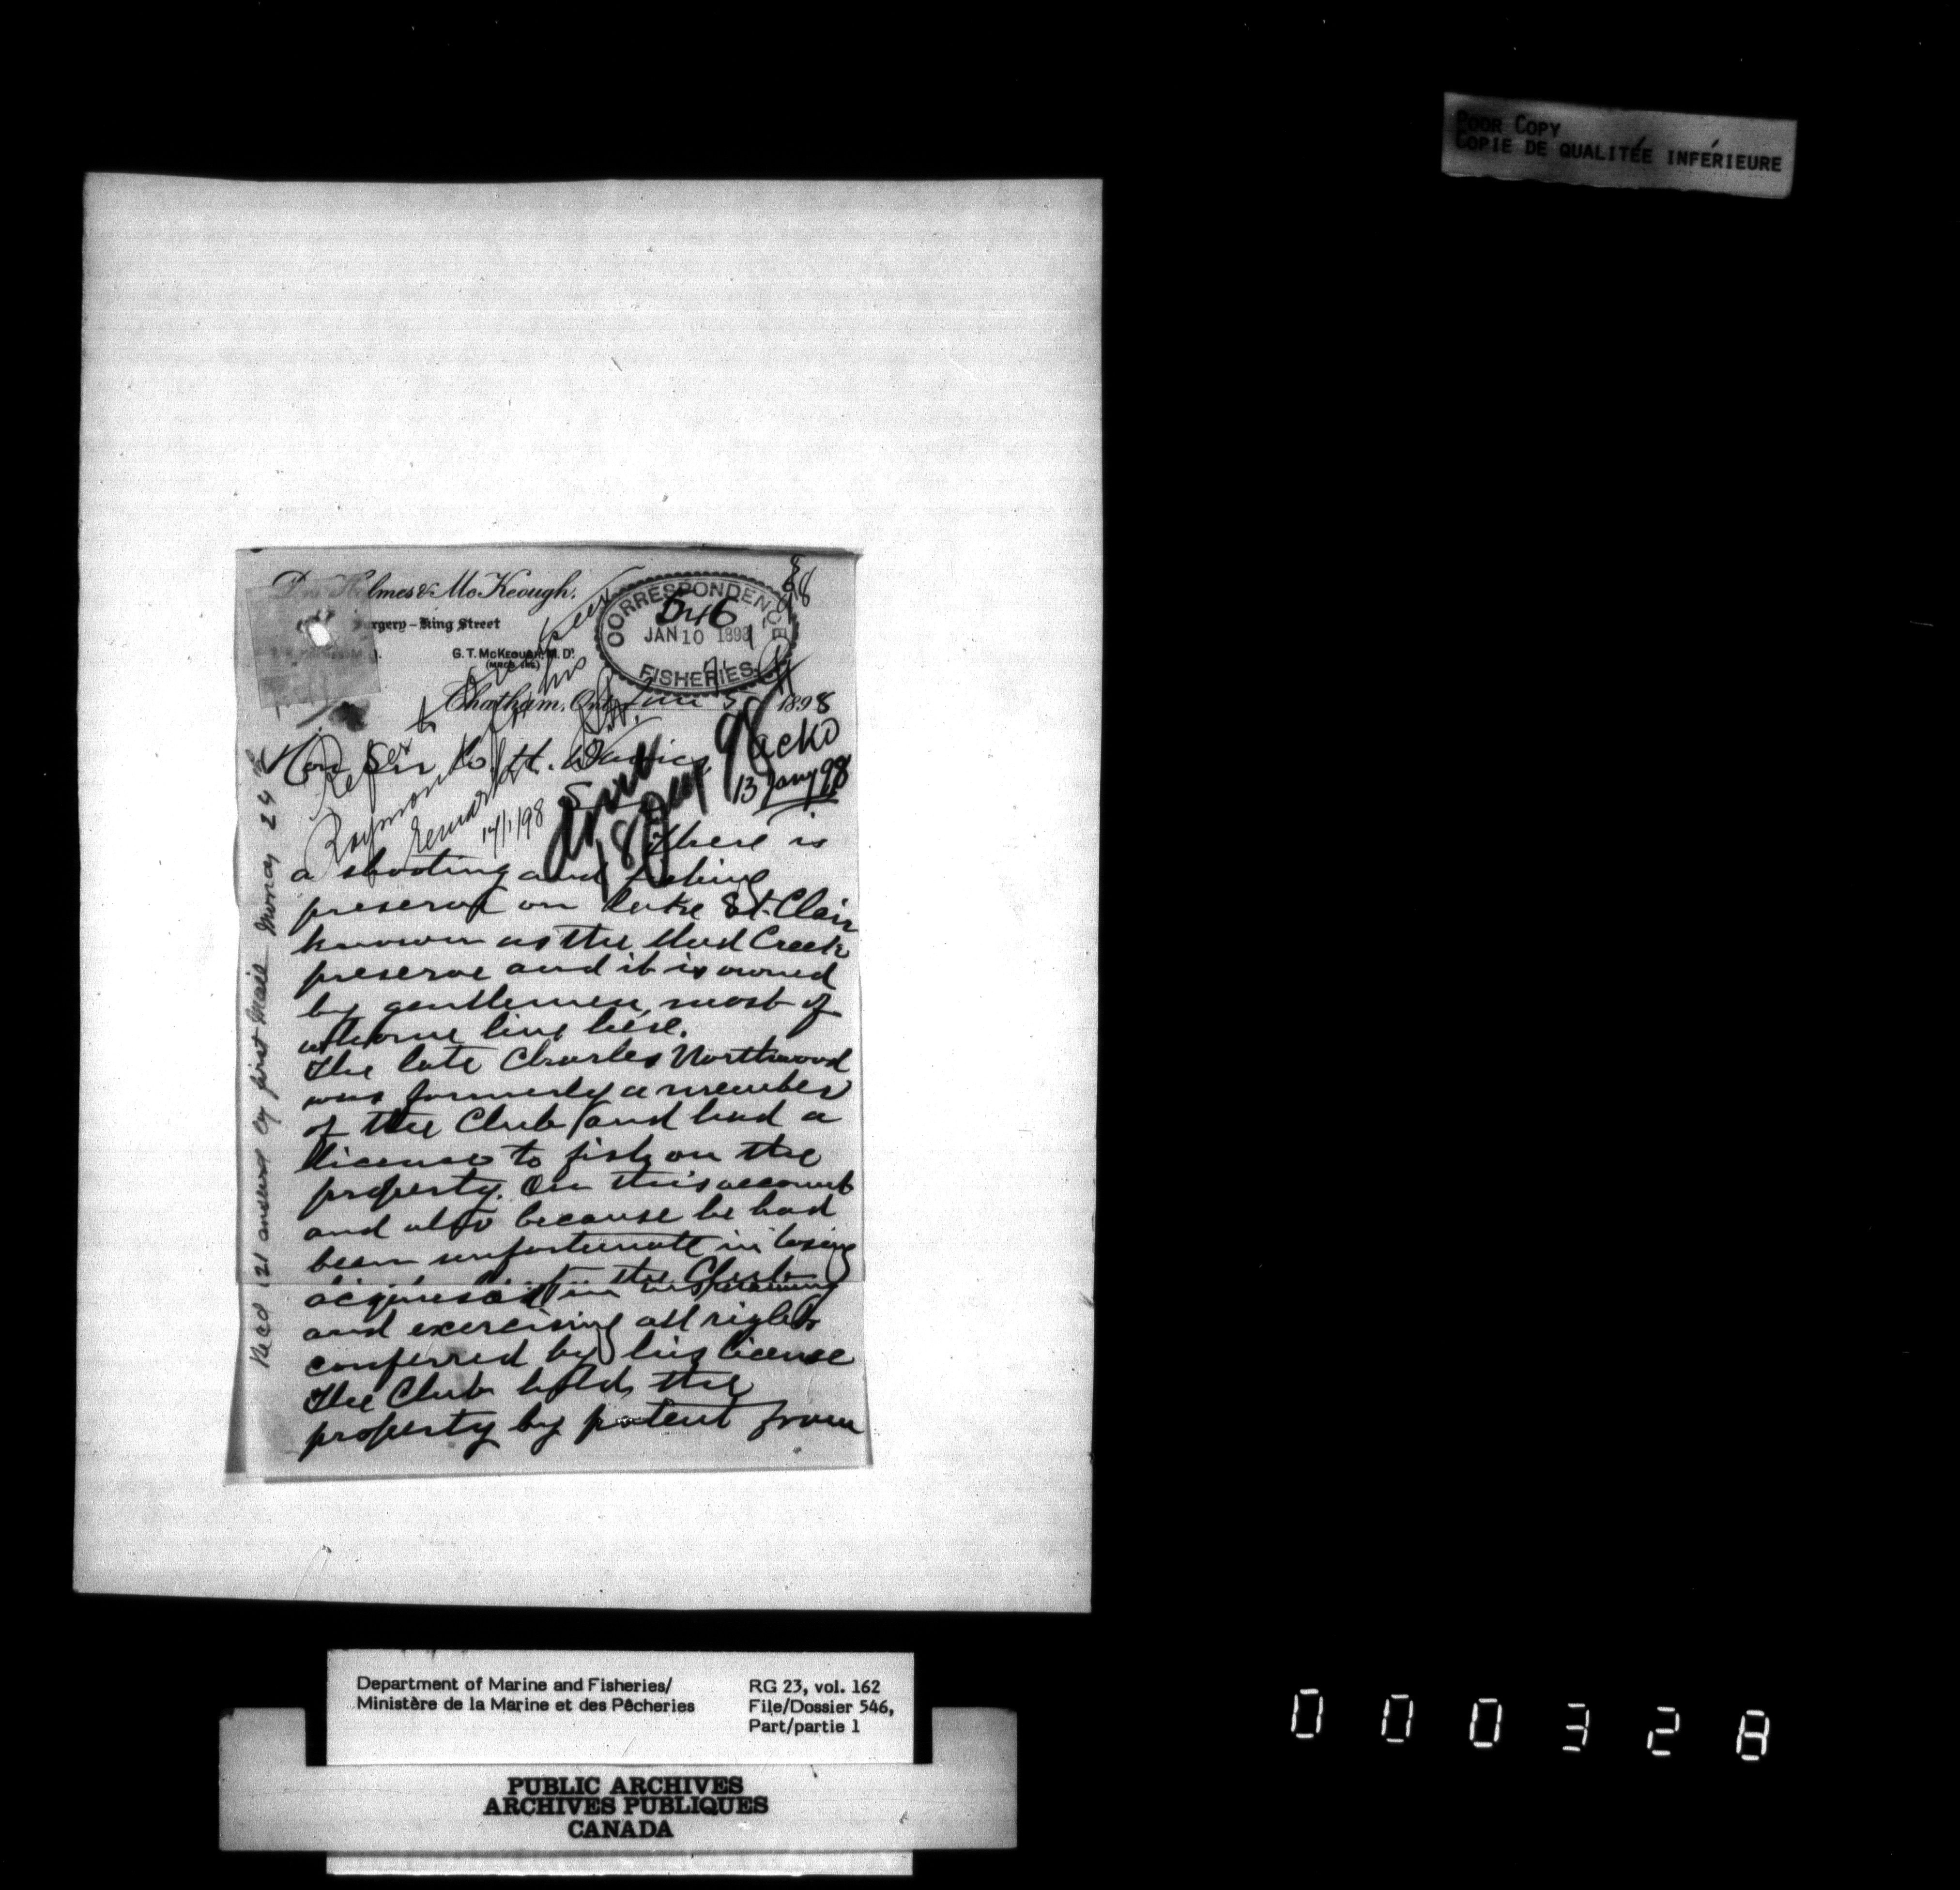 POOR COPY
COPIE DE QUALITÉE INFÉRIEURE
Drs Holmes & McKeough.
Surgery – King Street
G. T. McKEOUGH, M. D.
Chatham, Ont., Jan 5 1898
CORRESPONDENCE
546
JAN 10 1898
FISHERIES
ackd
13 Jany 98
Refer to
Raymond for his
remarks
14/1/98
Hon Sir L. H. Davies
Sir
There is
a shooting and fishing
preserve on Lake St. Clair
known as the Mud Creek
preserve and it is owned
by gentlemen, most of
whome live here.
The late Charles Northwood
was formerly a member
of the Club and had a
license to fish on the
property. On this account
and also because he had
been unfortunate in losing
the Club
acquiesced in
and exercising all rights
conferred by his license
The Club holds the
property by patent from
Recd 21 answer by first mail Monday 24th
Department of Marine and Fisheries/
Ministère de la Marine et des Pêcheries
RG 23, vol. 162
File/Dossier 546,
Part/partie 1
PUBLIC ARCHIVES
ARCHIVES PUBLIQUES
CANADA
000328